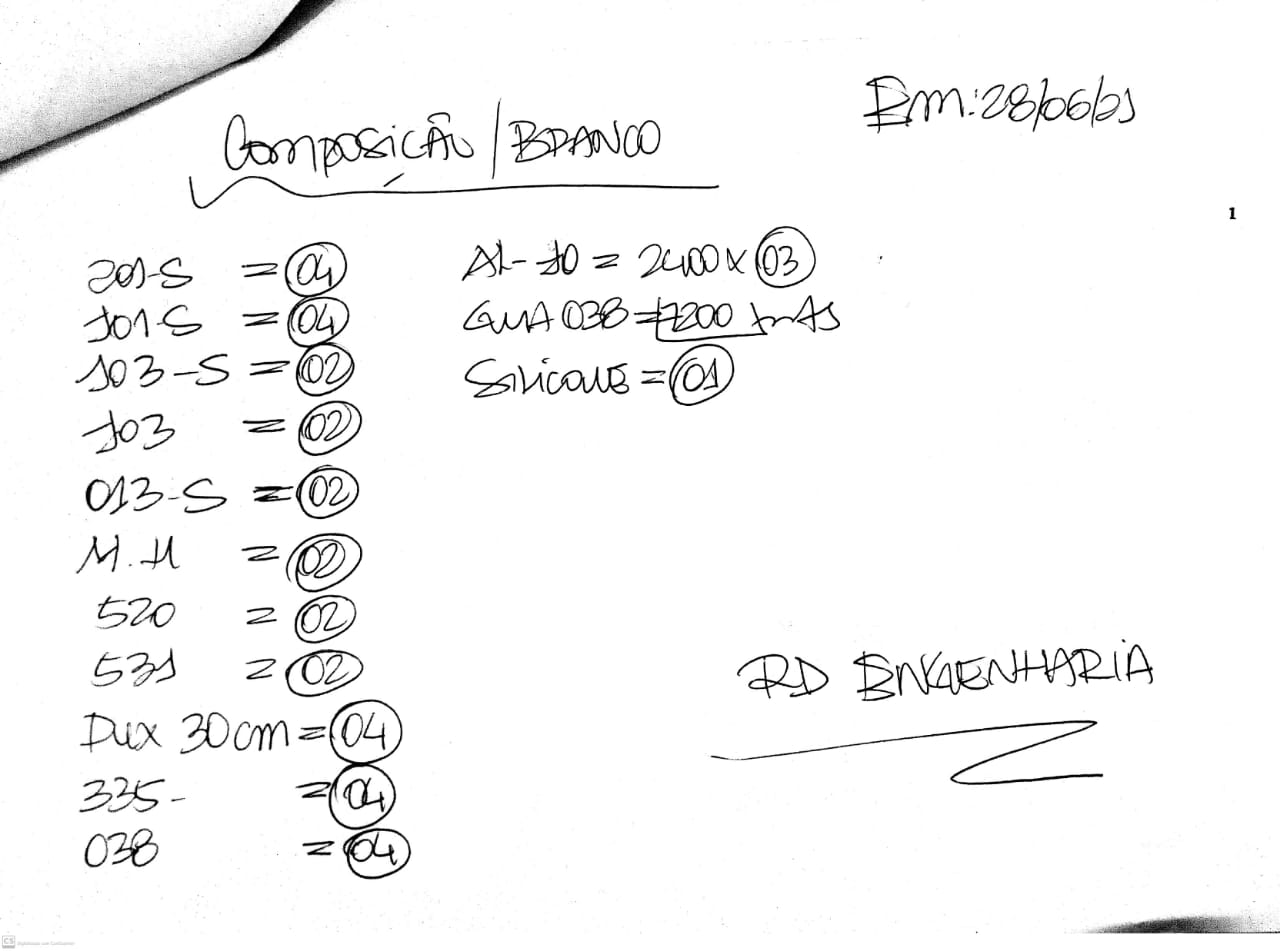 Em: 28/06/21
Composição / BRANCO
1
201-S = 04
101-S = 04
103-S = 02
103 = 02
013-S = 02
M.H = 02
520 = 02
531 = 02
Dux 30cm = 04
335- = 04
038 = 04
AL-10 = 2400 x 03
GUIA 038 = 7200
SiliCONE = 01
RD ENGENHARIA
CS Digitalizado com CamScanner